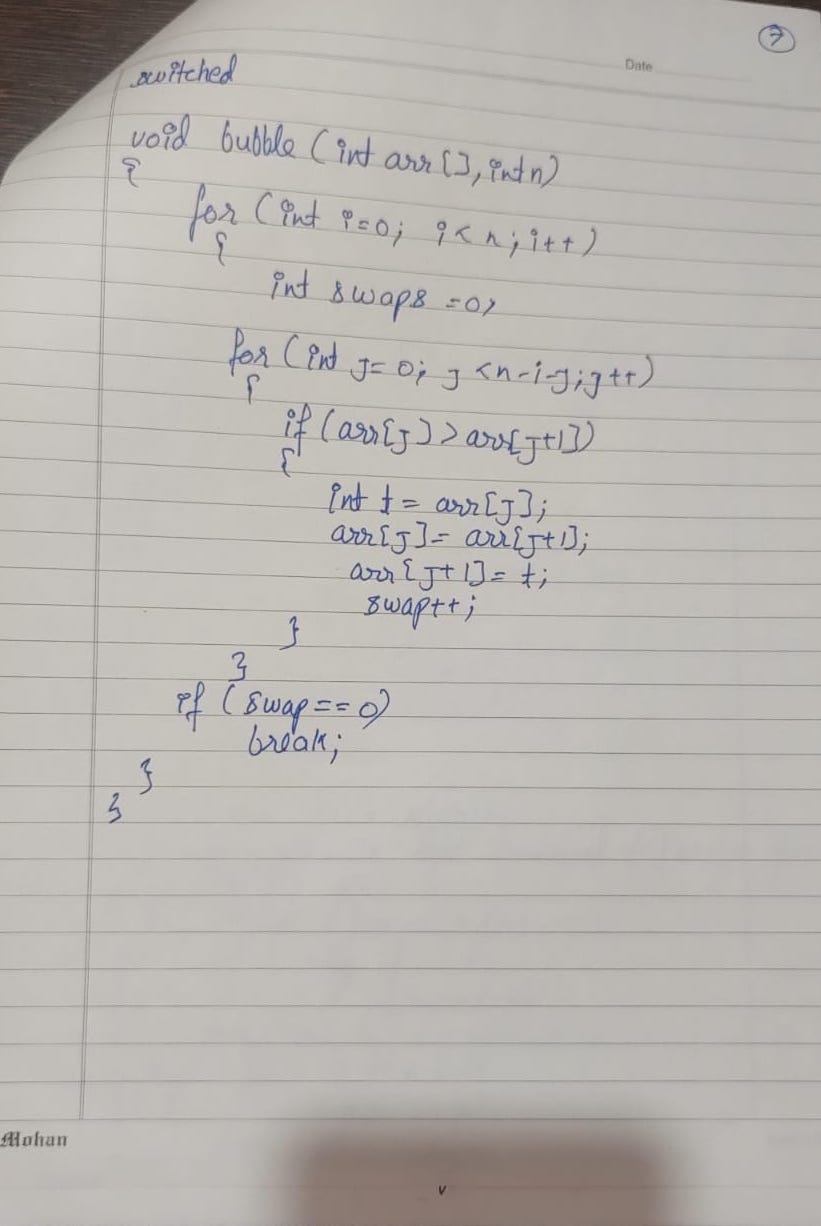 7
Date
switched
void bubble (int arr[], int n)
{
for (int i=0; i<n; i++)
{
int swaps =0;
for (int j=0; j<n-i-j; j++)
{
if (arr[j]>arr[j+1])
{
int t = arr[j];
arr[j]= arr[j+1];
arr[j+1]= t;
swap++;
}
}
if (swap==0)
break;
}
}
Mohan